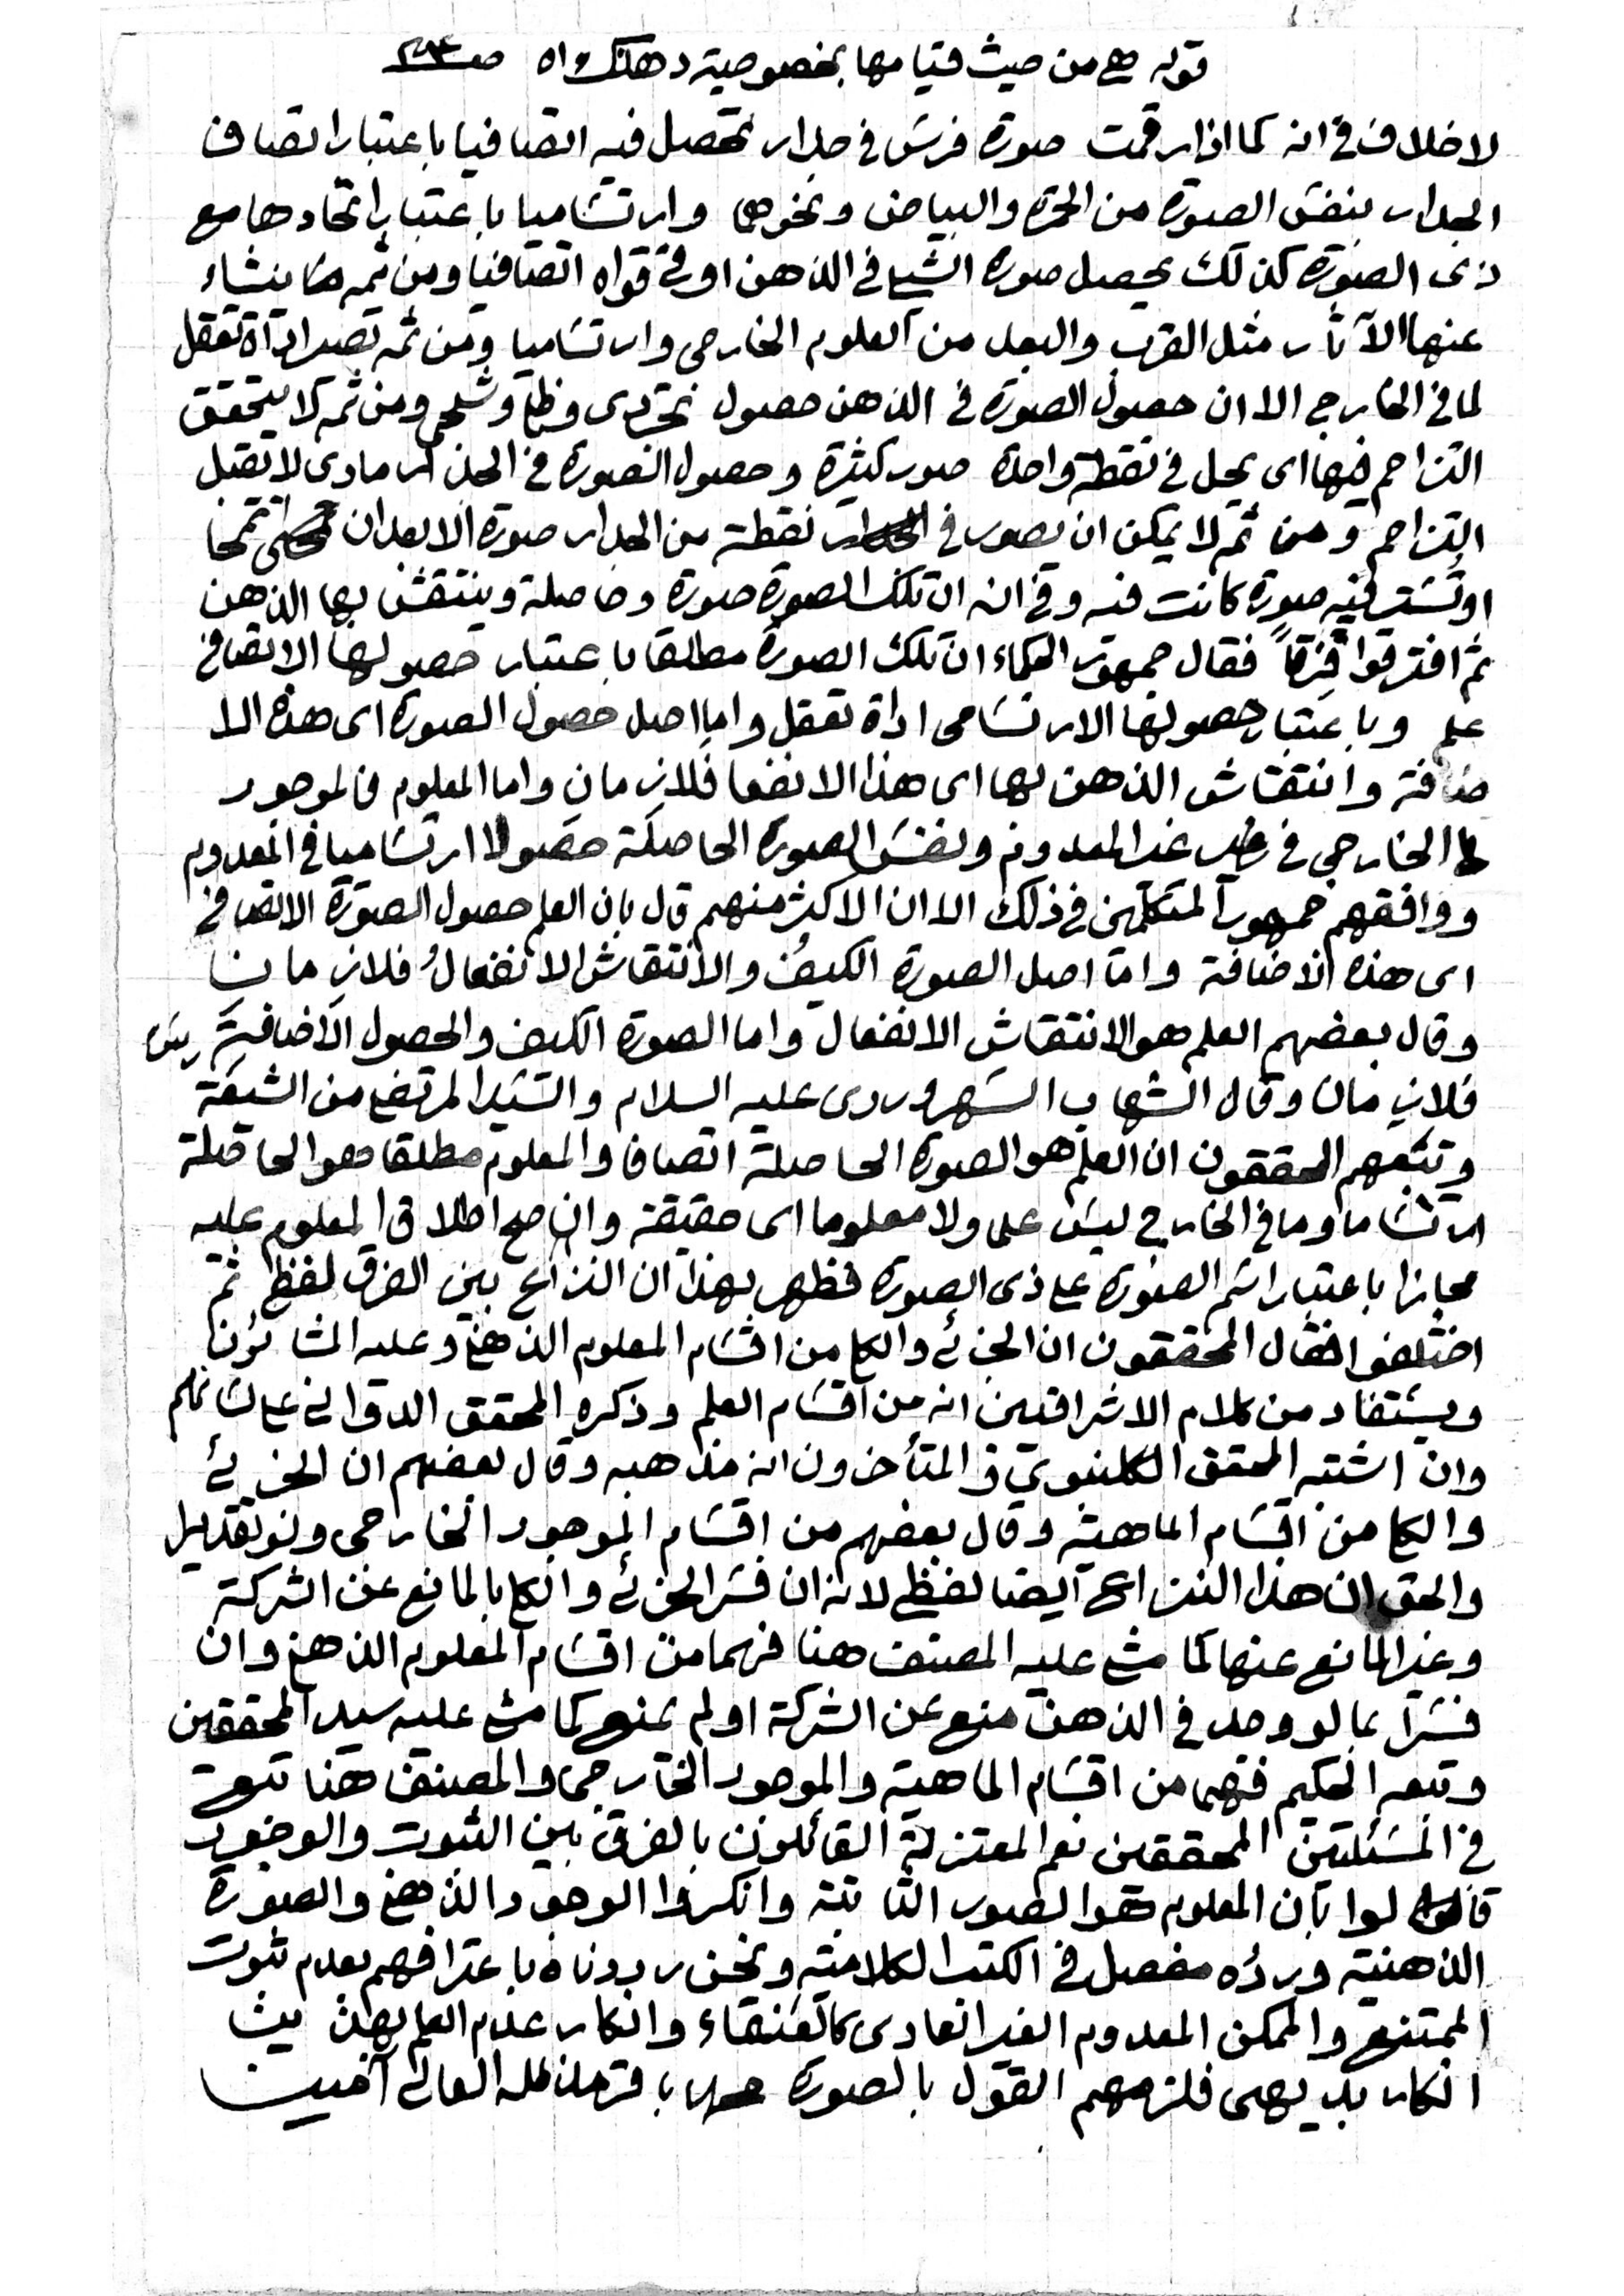 قوله من حيث قيامها بخصوصية ذهنك اه
لا خلاف في انه كما اذا رقمت صورة فرس في جدار تحصل فيه اتصافيا باعتبار اتصاف
الجدار بنفس الصورة من الحمرة والبياض ونحوهما وارتساميا باعتبار اتحادها مع
ذى الصورة كذلك يحصل صورة الشيء في الذهن او في قواه اتصافيا ومن ثمه ينشاء
عنها الآثار مثل القرب والبعد من العلوم الخارجى وارتساميا ومن ثمه تصير اداة تعقل
لما في الخارج الا ان حصول الصورة في الذهن حصول تجردى وظلى وشبحى ومن ثمه لا يتحقق
التزاحم فيها اى يحل في نقطة واحدة صور كثيرة وحصول الصورة في الجدار مادى لا تقبل
التزاحم ومن ثم لا يمكن ان يصور في نقطة من الجدار صورة الا بعد ان تمحا
او تستر فيه صورة كانت فيه وفي انه ان تلك الصورة صورة وحاصلة وينتقش بها الذهن
ثم افترقوا فِرَقاً فقال جمهور الحكماء ان تلك الصورة مطلقا باعتبار حصولها الاتصافى
علم وباعتبار حصولها الارتسامى اداة تعقل واما اصل حصول الصورة اى هذه الا
ضافة وانتقاش الذهن بها اى هذا الانفعا فلازمان واما المعلوم فالموجود
الخارجى في غير المعدوم ونفس الصورة الحاصلة حصولا ارتساميا في المعدوم
ووافقهم جمهور المتكلمين في ذلك الا ان الاكثر منهم قال بان العلم حصول الصورة الاتصافى
اى هذه الاضافة واما اصل الصورة الكيف والانتقاش الانفعال فلازمان
وقال بعضهم العلم هو الانتقاش الانفعال واما الصورة الكيف والحصول الاضافية
فلازمان وقال الشهاب السهروردى عليه السلام والسيد المرتضى من الشيعة
وتبعهم المحققون ان العلم هو الصورة الحاصلة اتصافا والمعلوم مطلقا هو الحاصلة
ارتساما وما في الخارج ليس علما ولا معلوما اى حقيقة وان صح اطلاق المعلوم عليه
مجازا باعتبار اسم الصورة على ذى الصورة فظهر بهذا ان النزاع بين الفرق لفظى ثم
اختلفوا فقال المحققون ان الجزئى والكلى من اقسام المعلوم الذهنى وعليه المشائون
ويستفاد من كلام الاشراقيين انه من اقسام العلم وذكره المحقق الدوانى على لسانهم
وان اشتبه المحقق الكلنبوي والمتأخرون انه مذهبه وقال بعضهم ان الجزئى
والكلى من اقسام الماهية وقال بعضهم من اقسام الموجود الخارجى ولو تقديرا
والحق ان هذا النزاع ايضا لفظى لانه ان فسر الجزئى والكلى بالمانع عن الشركة
وغير المانع عنها كما مشى عليه المصنف هنا فهما من اقسام المعلوم الذهنى وان
فسرا بما لو وجد في الذهن منع عن الشركة او لم يمنع كما مشى عليه سيد المحققين
وتبعه الحكيم فهما من اقسام الماهية والموجود الخارجى والمصنف هنا تبع
في المسئلتين المحققين نعم المعتزلة القائلون بالفرق بين الثبوت والوجود
قالوا بان المعلوم هو الصور الثابتة وانكروا الوجود الذهنى والصورة
الذهنية وردّه مفصل في الكتب الكلامية ونحن رددناه باعترافهم بعدم ثبوت
الممتنع والممكن المعدوم الغير العادى كالعنقاء وانكار عدم العلم بهذ يـث
انكار بديهى فلزمهم القول بالصورة باقر مد ظله العالى آمين